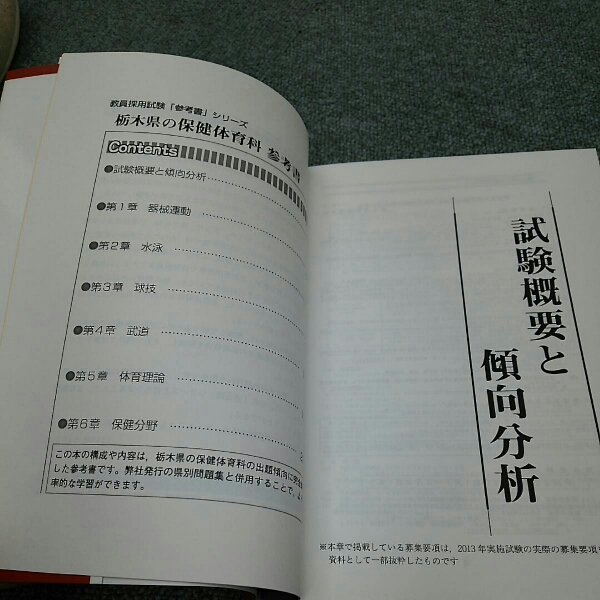 教員採用試験「参考書」シリーズ
栃木県の保健体育科 参考書
Contents
●試験概要と傾向分析
●第1章 器械運動
●第2章 水泳
●第3章 球技
●第4章 武道
●第5章 体育理論
●第6章 保健分野
この本の構成や内容は、栃木県の保健体育科の出題傾向に
した参考書です。弊社発行の県別問題集と併用することで、よ
率的な学習ができます。
試験概要と
傾向分析
※本章で掲載している募集要項は、2013年実施試験の実際の募集要項
資料として一部抜粋したものです